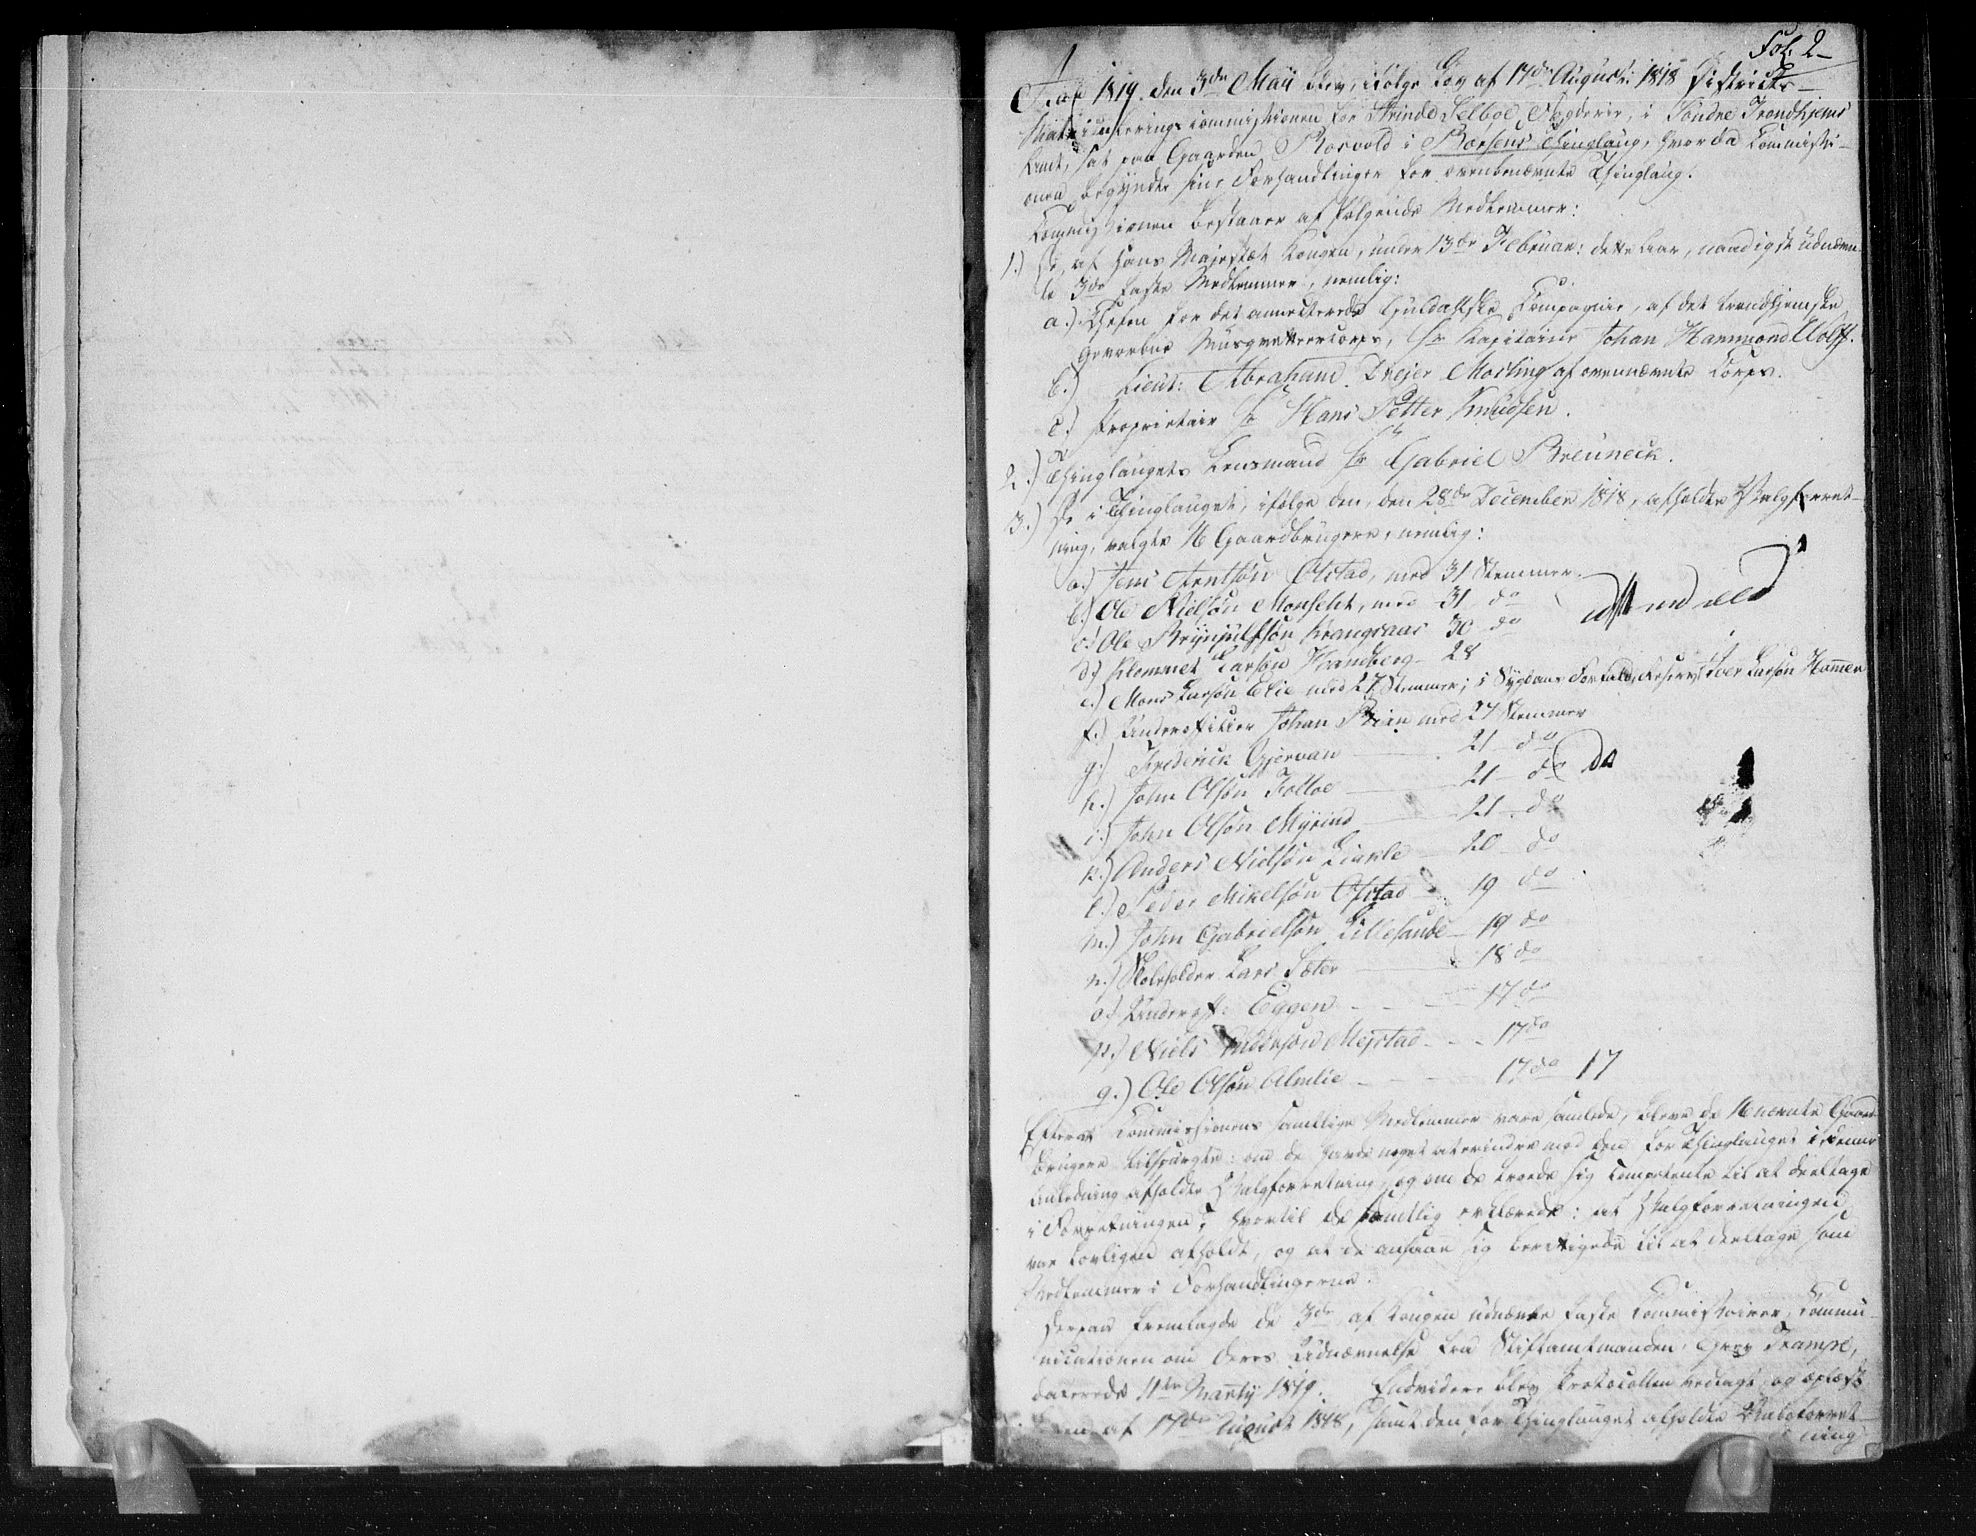 Fol. 2
Aar 1819. den 3de Maii blev, ifølge Lov af 17de August: 1818 Districts-
Matriculeringscommissionen for Strinde Selboe Fogderie, i Søndre Trondhjems
Amt, sat paa Gaarden Rosvold i Børsens Thinglaug, hvor da Commissi-
onen begyndte sine Forhandlinger for ovenbenævnte Thinglaug.
Commissionen bestaaer af følgende Medlemmer:
1.) De, af Hans Majestæt Kongen, under 13de Februar: dette Aar, naadigst udnævn-
te 3de faste Medlemmer, nemlig:
a.) Chefen for det annecterede Guldalske Compagnie, af det trondhjemske
gevorbne Musqvetteercorps, Hr Kapitaine Johan Hammond Wolff.
b.) Lieut: Abraham Drejer Morling af ovennævnte Corps.
c.) Proprietair Hr Hans Petter Knudsen.
2.) Thinglaugets Lensmand Hr Gabriel Breuneck.
3.) De i Thinglauget, ifølge den, den 28de December 1818, afholdte Valgforret-
ning, valgte 16 Gaardbrugere, nemlig:
a.) Jens Arntsøn Olstad, med 31 Stemmer.
b.) Ole Nielsøn Monseht, med 31 do
c.) Ole Brynjulfsøn Krangsaas 30 do
d.) Klemmet Larsøn Handberg 28
e.) Mons Larsøn Elie med 27 Stemmer; i Sygdoms Forfald, Reserv: Iver Larsøn Hammer
f.) Underofficier Johan Brien med 27 Stemmer
g.) Frederick Gjervan 21 do
h.) John Olsøn Folloe 21 do do
i.) John Olsøn Myrind 21 do
k.) Anders Nielsøn Liavle 20 do
l.) Peder Mikelsøn Ofstad 19 do
m.) John Gabrielsøn Lillesande 19 do
n.) Skoleholder Lars Sæter 18 do
o.) Underoff: Eggen 17 do
p.) Niels Andersøn Mejstad 17 do
q.) Ole Olsøn Almlie 17 do 17
Efterat Commissionens samtlige Medlemmer vare samlede, bleve de 16 nævnte Gaard-
brugere tilspurgte: om de havde noget at erindre mod den for Thinglauget i denne
Anledning afholdte Valgforretning, og om de troede sig competente til at deeltage
i Forretningen; hvortil de samtlig erklærede: at Valgforretningen
var lovligen afholdt, og at de ansaae sig berettigede til at deeltage som
Medlemmer i Forhandlingerne.
Derpaa fremlagde de 3de af Kongen udnævnte faste Commissairer, Commu-
nicationen om deres Udnævnelse fra Stiftamtmanden, Grev Trampe,
daterede 11te Martij 1819. Endvidere blev Protocollen vedlagt og oplæst
Loven af 17de August 1818, samt den for Thinglauget afholdte Valgforret-
ning